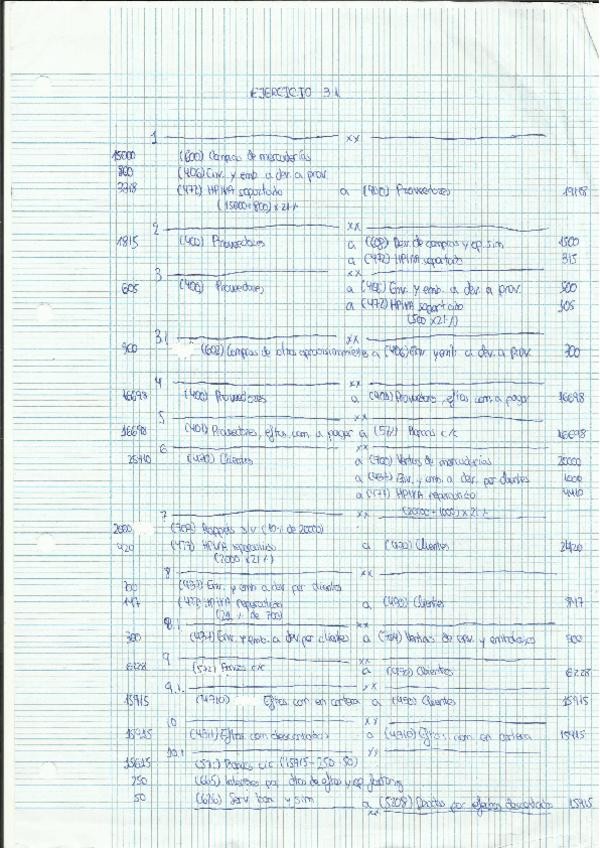 EJERCICIO 3.1
1 xx
15000 (600) Compras de mercaderías
800 (406) Env. y emb a dev. a prov
3318 (472) HP IVA soportado a (400) Proveedores 19118
(15000+800) x 21%
2 xx
1815 (400) Proveedores a (608) Dev. de compras y op. sim 1500
a (472) HP IVA soportado 315
3 xx
605 (400) Proveedores a (406) Env. y emb. a dev. a prov. 500
a (472) HP IVA soportado 105
(500 x 21%)
3.1 xx
300 (602) Compras de otros aprovisionamientos a (406) Env y emb a dev. a prov. 300
4 xx
16698 (400) Proveedores a (401) Proveedores, eftos com. a pagar 16698
5 xx
16698 (401) Proveedores, eftos. com. a pagar a (572) Bancos c/c 16698
6 xx
25410 (430) Clientes a (700) Ventas de mercaderías 20000
a (437) Env. y emb a dev. por clientes 1000
a (477) HP IVA repercutido 4410
(20000 + 1000) x 21%
7 xx
2000 (709) Rappels s/v (10% de 20000)
420 (477) HP IVA repercutido a (430) Clientes 2420
(2000 x 21%)
8 xx
700 (437) Env. y emb a dev por clientes
147 (477) HP IVA repercutido a (430) Clientes 847
(21% de 700)
8.1 xx
300 (437) Env. y emb. a dev por clientes a (704) Ventas de env. y embalajes 300
9 xx
6228 (572) Bancos c/c a (430) Clientes 6228
9.1. xx
15915 (4310) Eftos com en cartera a (430) Clientes 15915
10 xx
15915 (4311) Eftos com descontados a (4310) Eftos. com. en cartera 15915
10.1 xx
15615 (572) Bancos c/c (15915 - 250 - 50)
250 (665) Intereses por dtos de eftos y op factoring
50 (626) Serv. ban. y sim a (5208) Deudas por efectos descontados 15915
xx